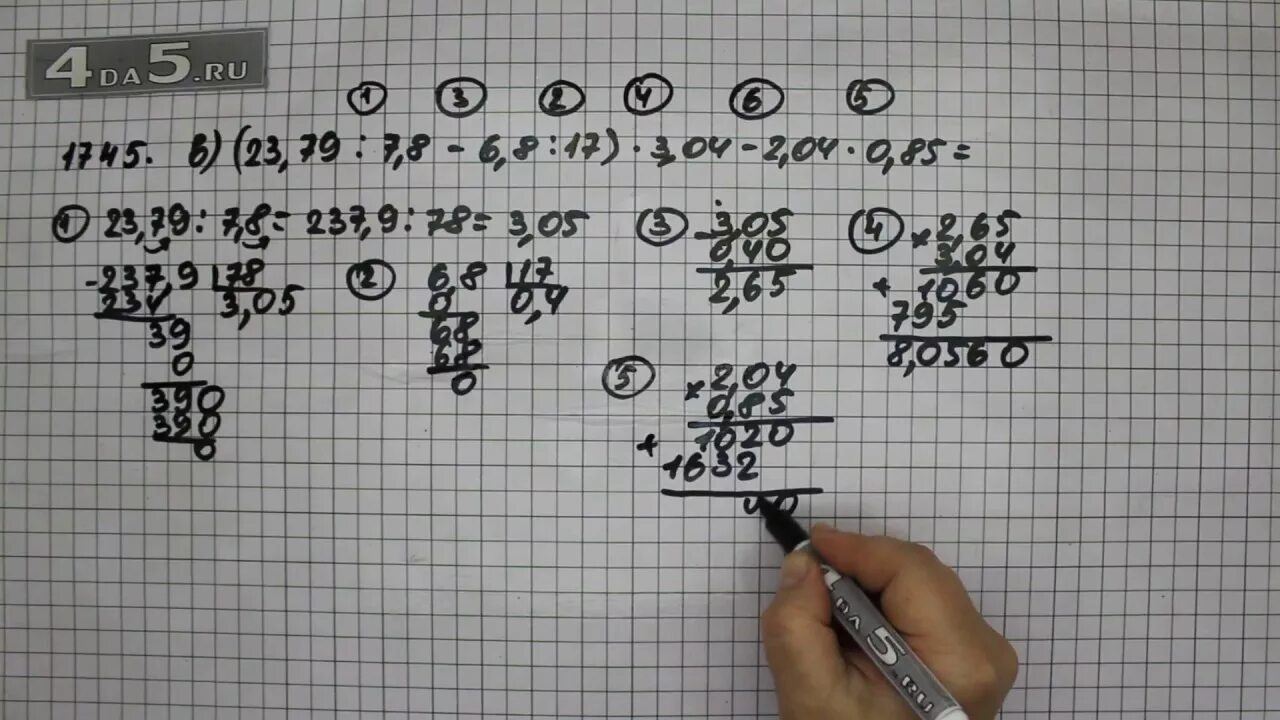 4DA5.RU
1 3 2 4 6 5
1745. в) (23,79 : 7,8 - 6,8 : 17) · 3,04 - 2,04 · 0,85 =
1 23,79 : 7,8 = 237,9 : 78 = 3,05
-237,9 78
234 3,05
39
0
390
390
0
2 6,8 17
0 0,4
68
68
0
3 -3,05
0,40
2,65
4 ×2,65
3,04
+1060
795
8,0560
5 ×2,04
0,85
+1020
1632
40
4DA5.RU